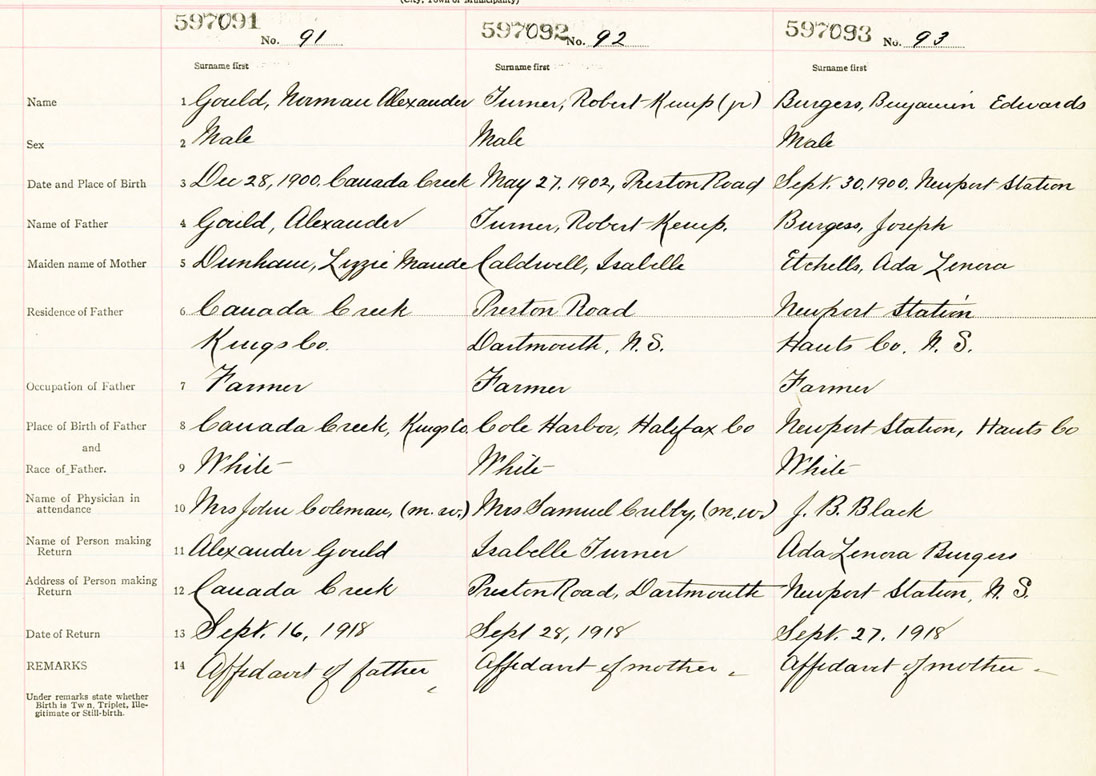 (City, Town or Municipality)
597091 No. 91 597092 No. 92 597093 No. 93
Surname first Surname first Surname first
Name 1 Gould, Norman Alexander Turner, Robert Kemp (jr) Burgess, Benjamin Edwards
Sex 2 Male Male Male
Date and Place of Birth 3 Dec 28, 1900. Canada Creek May 27, 1902, Preston Road Sept. 30, 1900. Newport Station
Name of Father 4 Gould, Alexander Turner, Robert Kemp. Burgess, Joseph
Maiden name of Mother 5 Dunham, Lizzie Maude Caldwell, Isabelle Etchells, Ada Lenora
Residence of Father 6 Canada Creek Preston Road Newport Station
Kings Co. Dartmouth, N.S. Hants Co. N.S.
Occupation of Father 7 Farmer Farmer Farmer
Place of Birth of Father 8 Canada Creek, Kings Co. Cole Harbor, Halifax Co Newport Station, Hants Co
and
Race of Father. 9 White White White
Name of Physician in
attendance 10 Mrs John Coleman, (m.w.) Mrs Samuel (m.w.) J. B. Black
Name of Person making
Return 11 Alexander Gould Isabelle Turner Ada Lenora Burgess
Address of Person making
Return 12 Canada Creek Preston Road, Dartmouth Newport Station, N.S.
Date of Return 13 Sept. 16, 1918 Sept 28, 1918 Sept. 27, 1918
REMARKS 14 Affidavit of father Affidavit of mother Affidavit of mother
Under remarks state whether
Birth is Tw n, Triplet, Ille-
gitimate or Still-birth.